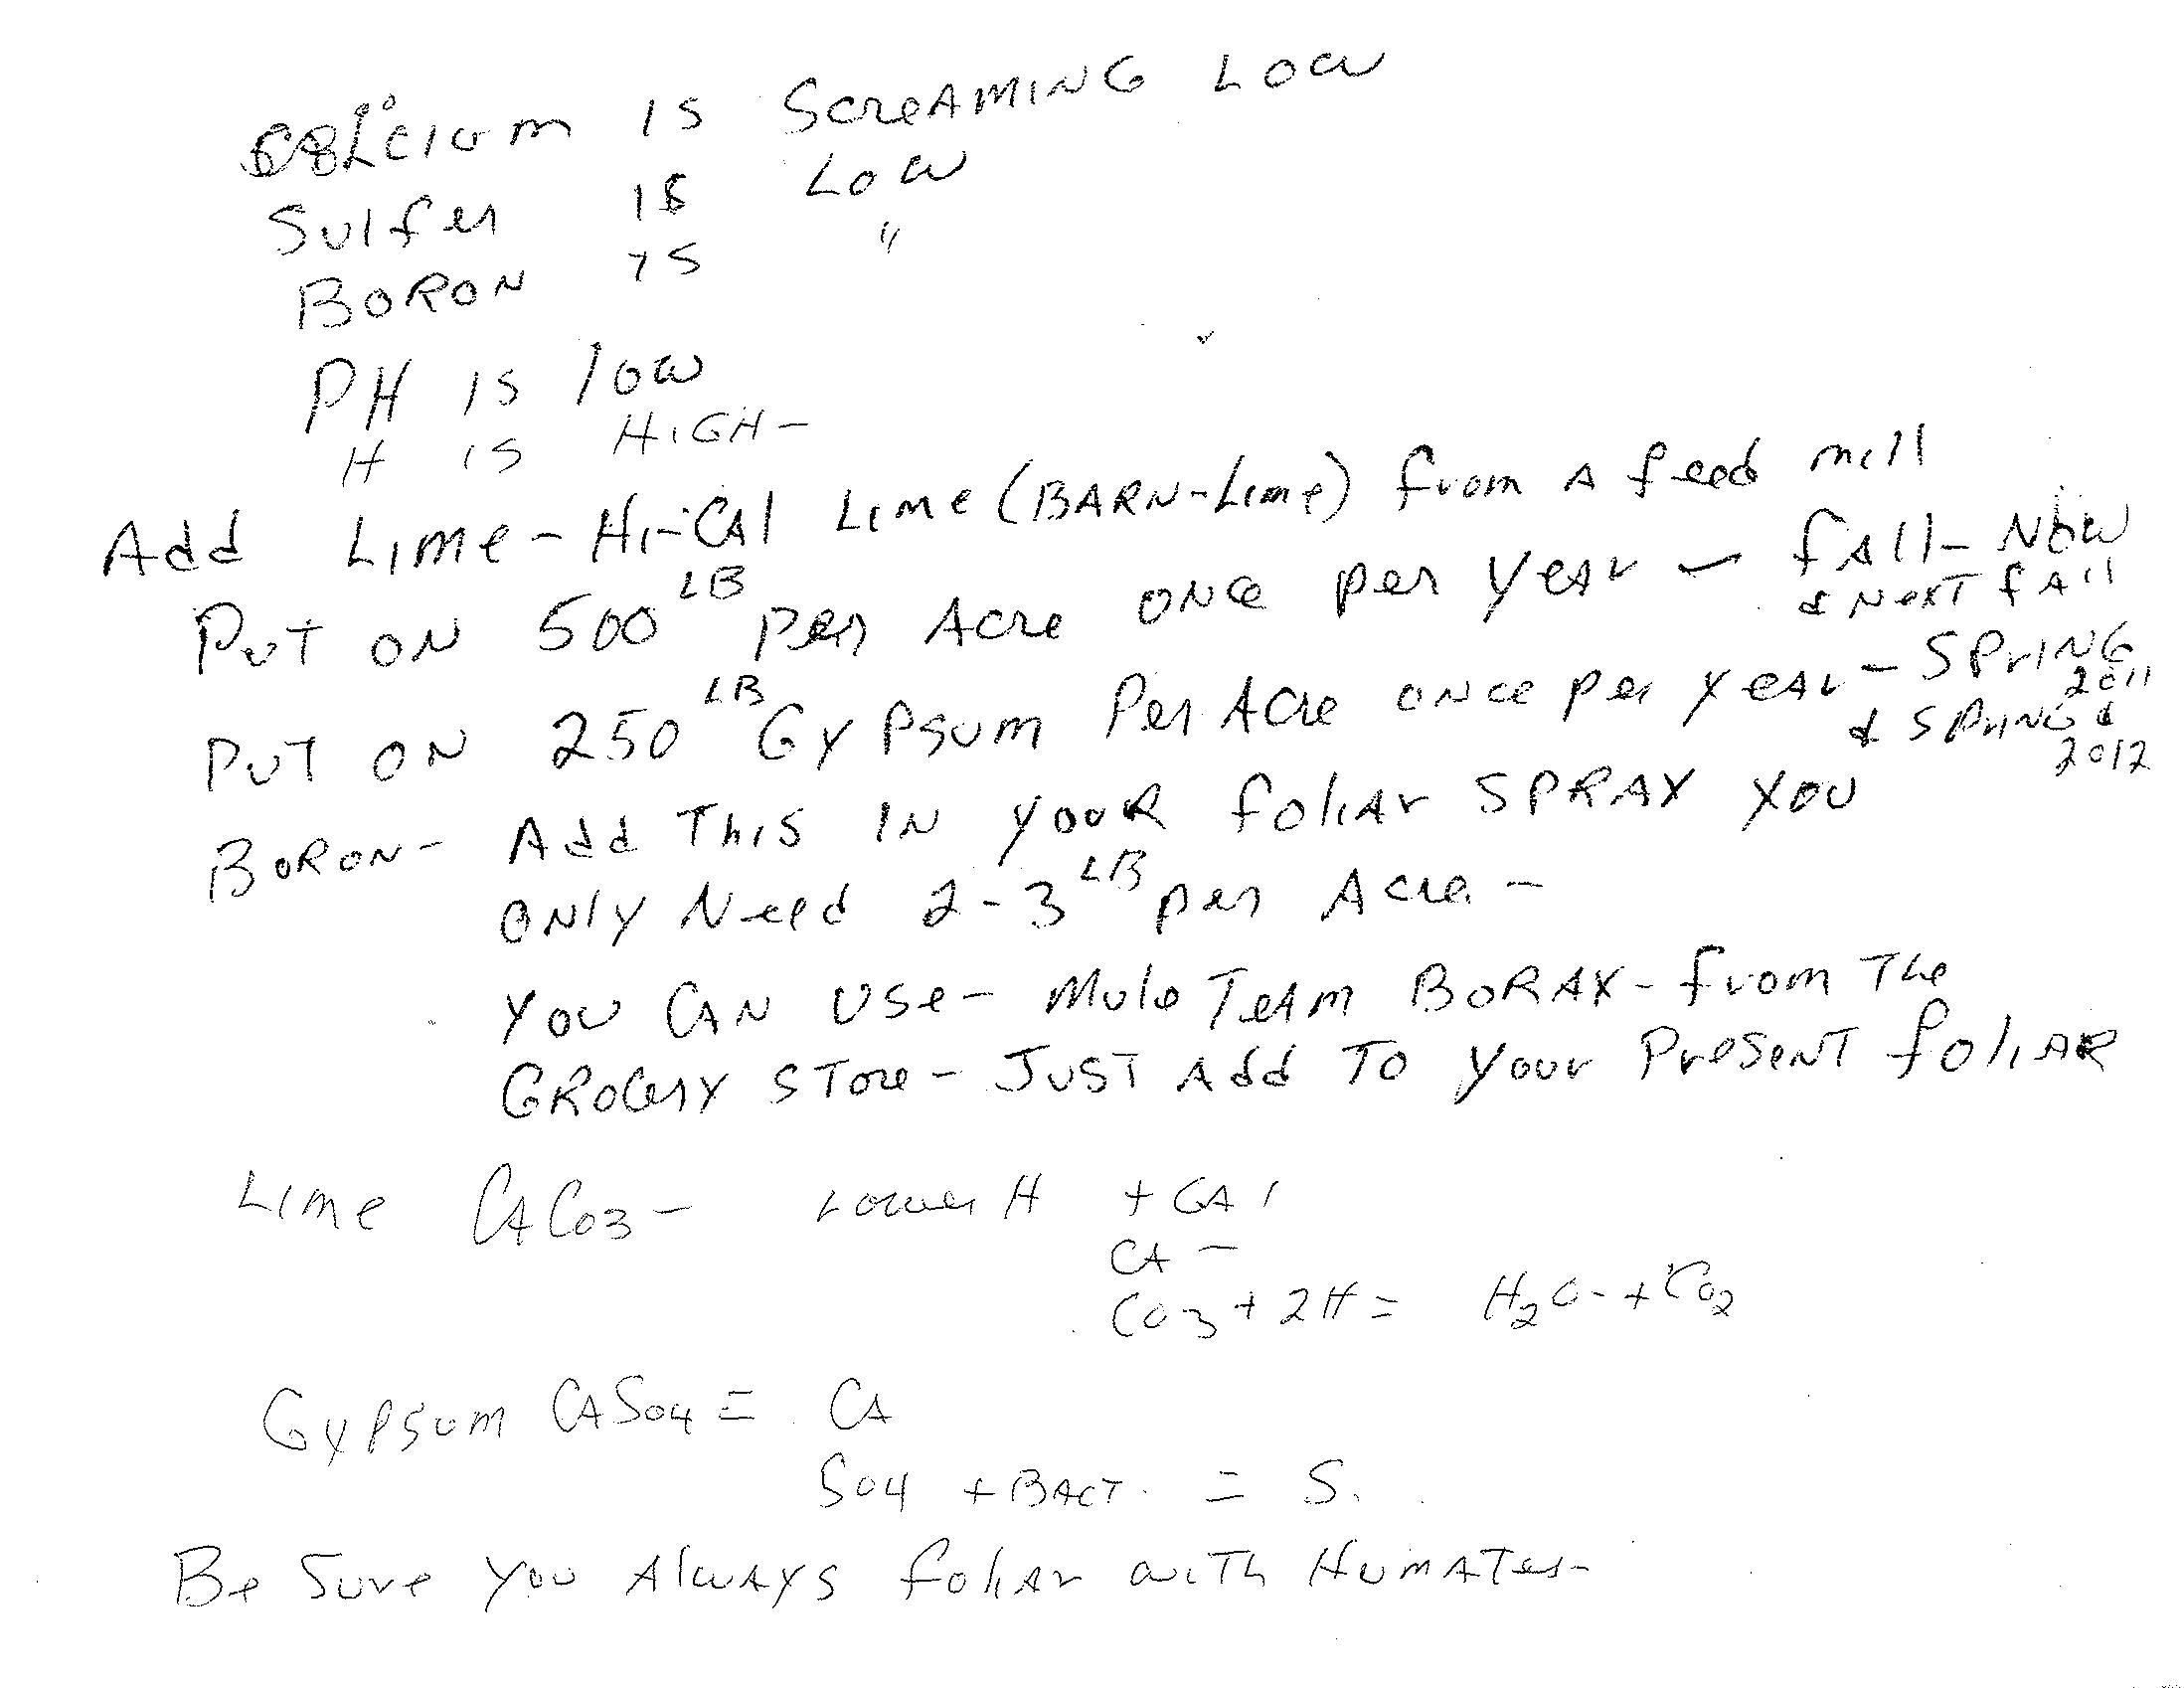 CALCIUM IS SCREAMING LOW
Sulfer IS LOW
BORON IS "
PH IS low
H IS HIGH-
Add LIME - HI-CAl LIME (BARN-LIME) from A feed mill
PUT ON 500 LB per Acre ONCE per YEAR - fAll - NOW
& NEXT fAll
PUT ON 250 LB GYPSUM Per Acre ONCE per YEAR - SPRING
2011
& SPRING &
2012
BORON - Add THIS IN YOUR foliar SPRAY YOU
ONLY Need 2-3 LB per Acre -
YOU CAN USE - Mule TEAM BORAX - from The
GROCERY STORE - JUST Add TO YOUR PRESENT foliAR
LIME CACO3 - Lower H + CA !
CA -
CO3 + 2H = H2O - + CO2
GYPSUM CASO4 = CA
SO4 + BACT. = S.
Be Sure YOU AlWAYS foliAr WITH HUMATES-